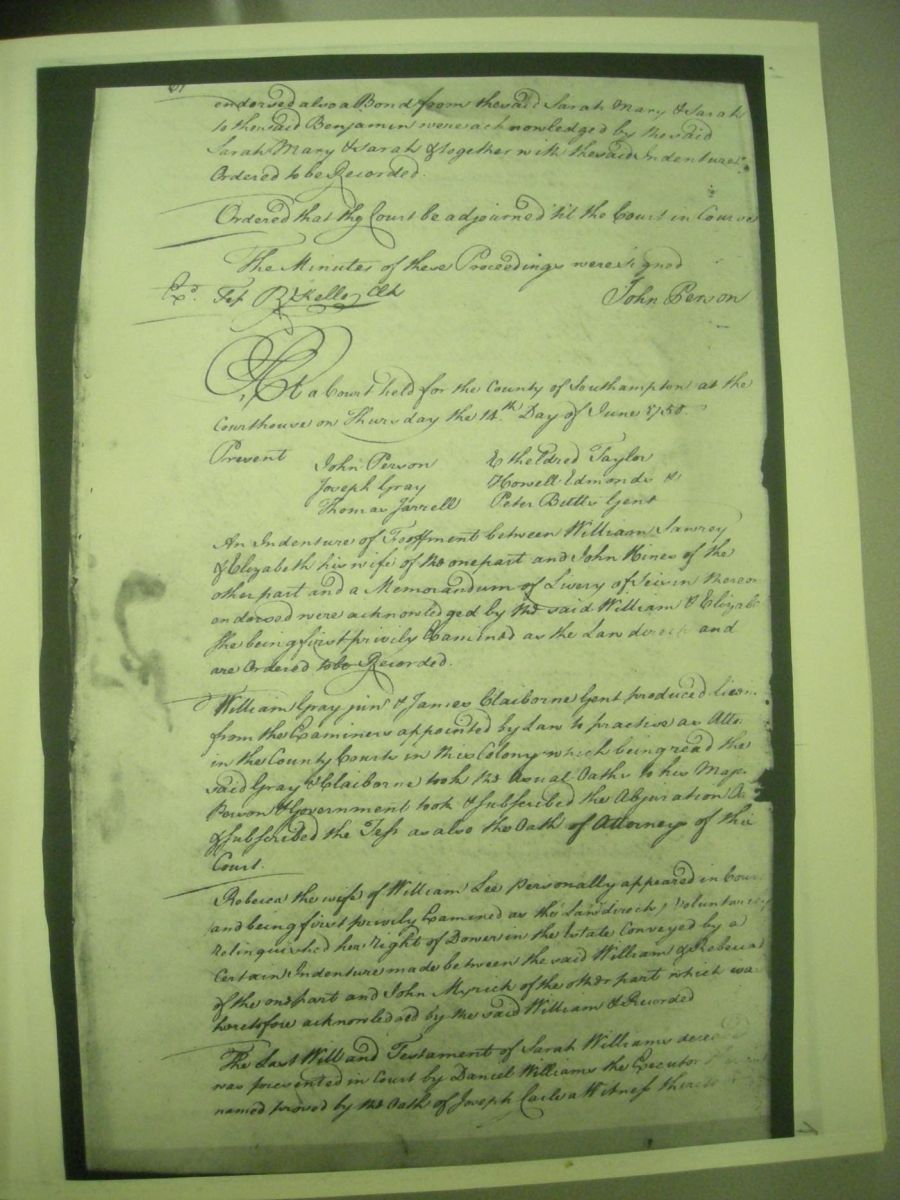 endorsed also a Bond from the said Sarah Mary & Sarah
to the said Benjamin were acknowledged by the said
Sarah Mary & Sarah & together with the said Indentures
Ordered to be Recorded.
Ordered that the Court be adjourned 'til the Court in Course
The Minutes of these Proceedings were signed
Exd. Test R Kello Clk John Person
At a Court held for the County of Southampton at the
Courthouse on Thursday the 14th Day of June 1750.
Present
John Person Etheldred Taylor
Joseph Gray Howell Edmonds &
Thomas Jarrell Peter Butts Gent
An Indenture of Feoffment between William Lawrey
& Elizabeth his wife of the one part and John Hines of the
other part and a Memorandum of Livery of Seisin thereon
endorsed were acknowledged by the said William & Elizab
she being first privily Examined as the Law directs and
are Ordered to be Recorded.
William Gray junr. & James Claiborne Gent produced licen
from the Examiners appointed by Law to practise as Atto
in the County Courts in this Colony which being read the
said Gray & Claiborne took the usual Oaths to his Maj
Person & Government took & subscribed the Abjuration
& subscribed the Test as also the Oath of Attorneys of this
Court.
Rebecca the wife of William Lee personally appeared in Court
and being first privily Examined as the Law directs, voluntarily
relinquished her right of Dower in the Estate Conveyed by a
Certain Indenture made between the said William & Rebecca
of the one part and John Myrick of the other part which was
heretofore acknowledged by the said William & Recorded
The Last Will and Testament of Sarah Williams deceased
was presented in Court by Daniel Williams the Executor
named proved by the Oath of Joseph a Witness thereto